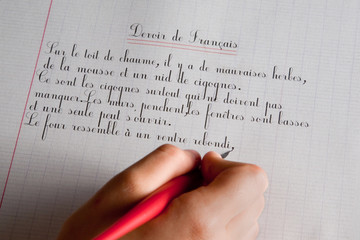 Devoir de Français
Sur le toit de chaume, il y a de mauvaises herbes,
de la mousse et un nid de cigognes.
Ce sont les cigognes surtout qui ne doivent pas
manquer. Les murs penchent, les fenêtres sont basses
et une seule peut s'ouvrir.
Le four ressemble à un ventre rebondi,